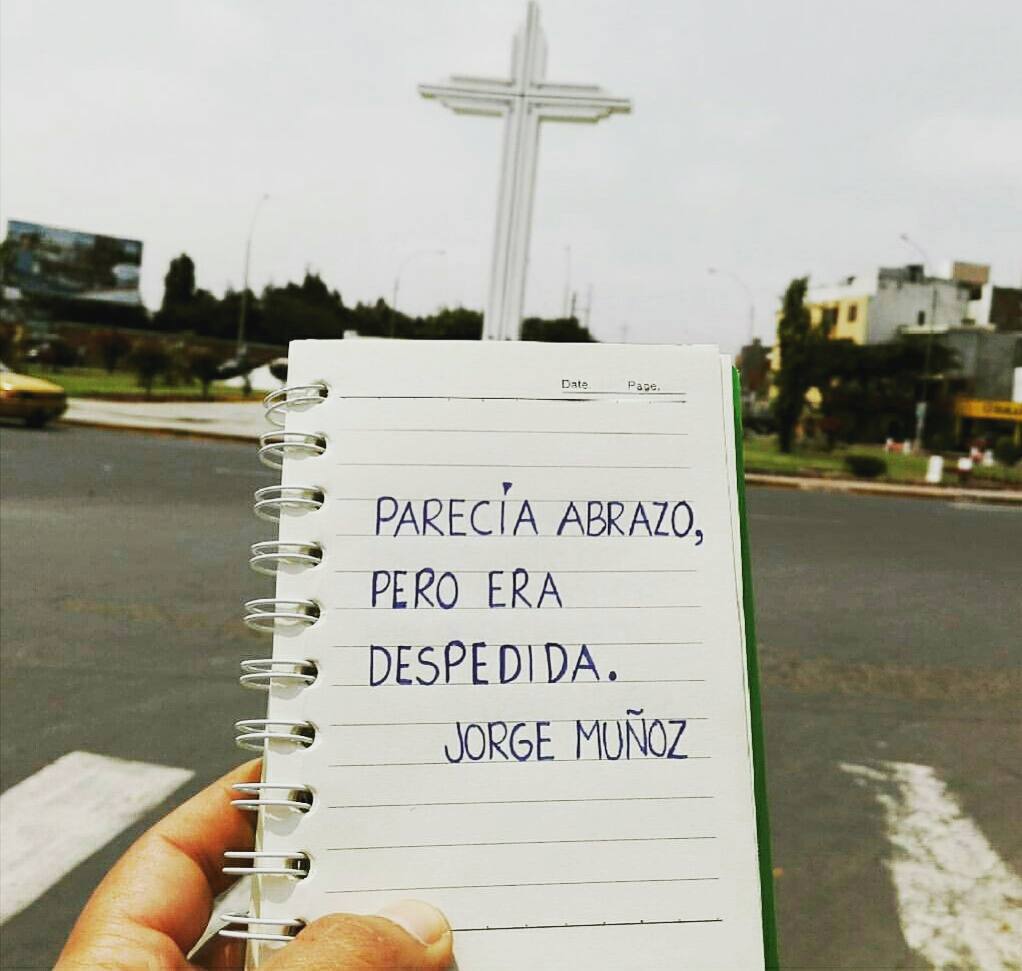 Date. Page.
PARECÍA ABRAZO,
PERO ERA
DESPEDIDA.
JORGE MUÑOZ